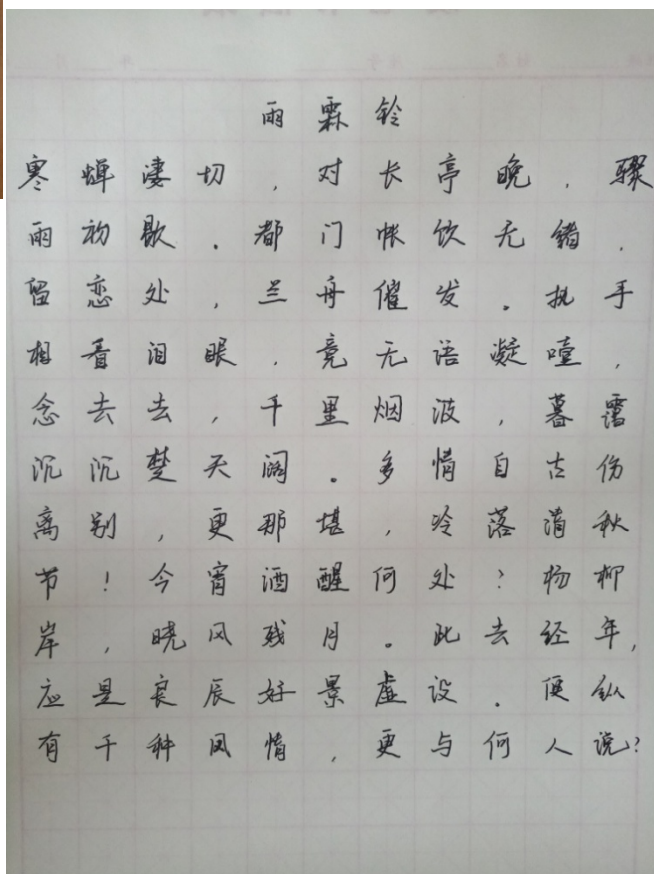 雨霖铃
寒蝉凄切，对长亭晚，骤
雨初歇。都门帐饮无绪，
留恋处，兰舟催发。执手
相看泪眼，竟无语凝噎，
念去去，千里烟波，暮霭
沉沉楚天阔。多情自古伤
离别，更那堪，冷落清秋
节！今宵酒醒何处？杨柳
岸，晓风残月。此去经年，
应是良辰好景虚设。便纵
有千种风情，更与何人说？